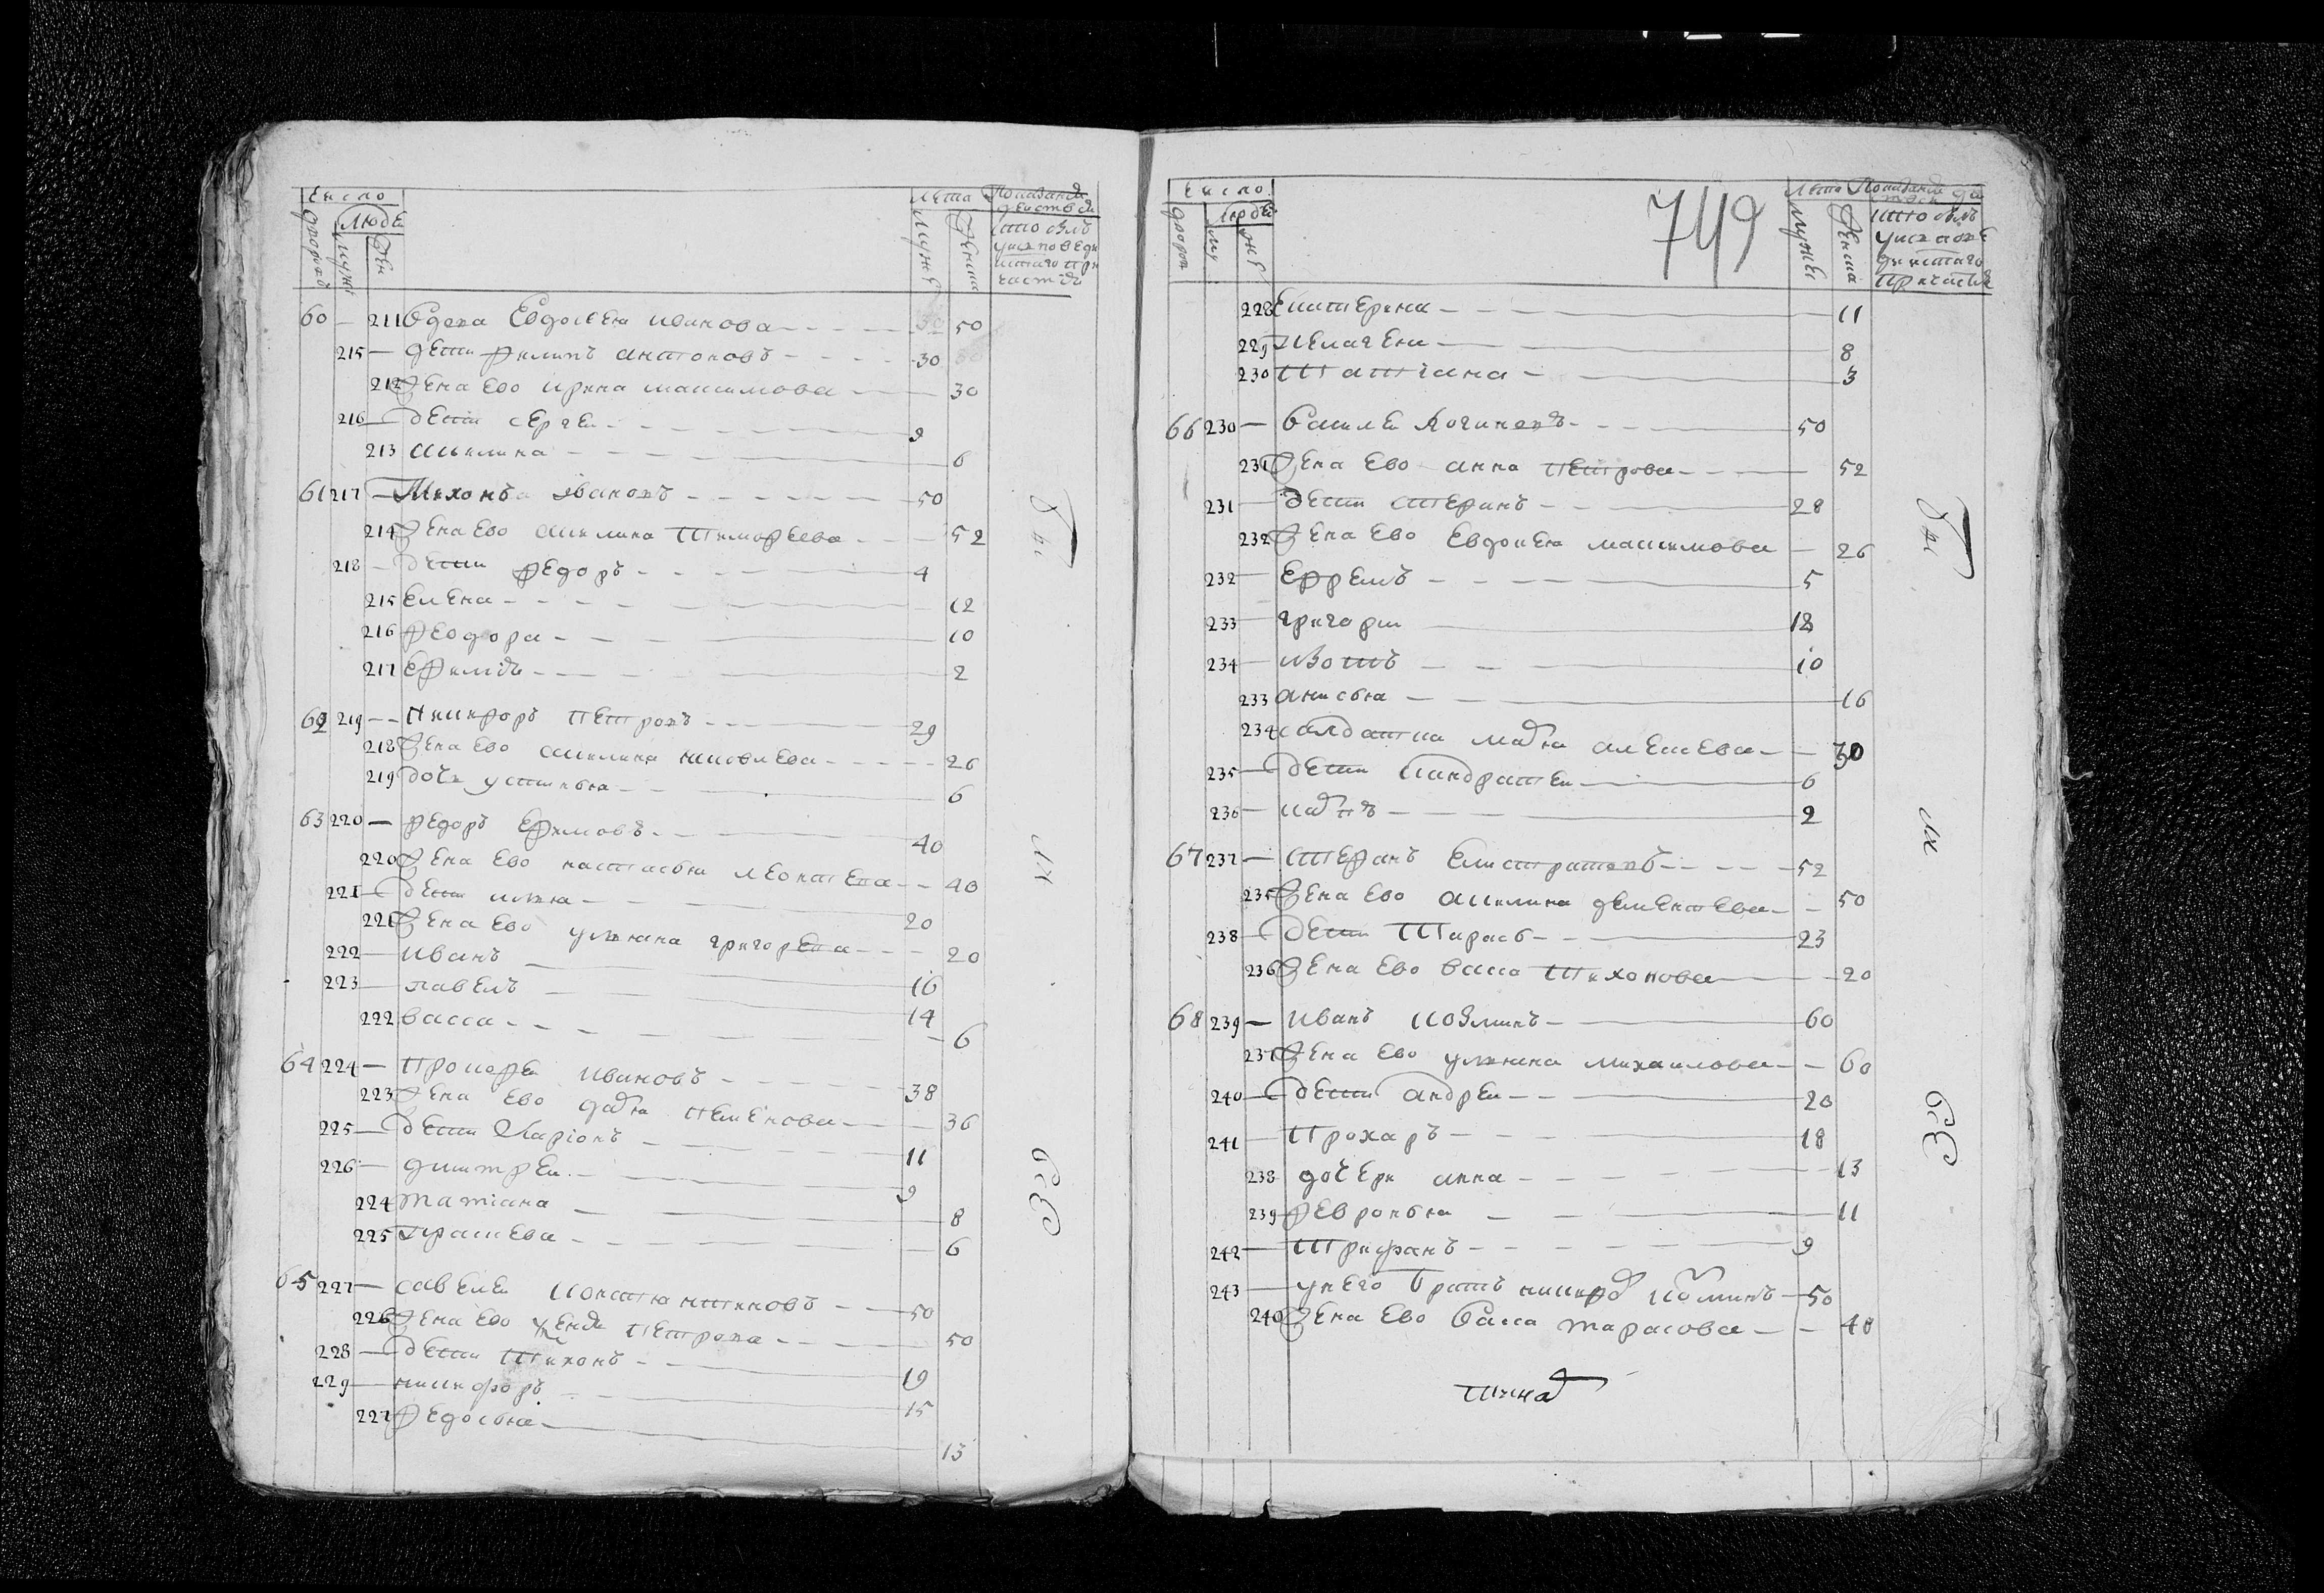 Число
Люде
Лета
60 — 211 Вдова Евдокея иванова — 50
215 — дети филипъ антоновъ — 30
212 Жена Ево ирина максимова — 30
216 — дети сергеи — 9
213 акилина — 6
61 217 — Тихонъ ивановъ — 50
214 Жена Ево акилина Тимофеева — 52
218 — дети федоръ — 4
215 Елена — 12
216 феодора — 10
217 Ефимiя — 2
62 219 — Никифоръ петровъ — 29
218 Жена Ево акилина — 26
219 дочь устинья — 6
63 220 — федоръ Ефимовъ — 40
220 Жена Ево настасья леонтева — 40
221 — дети илья — 20
221 Жена Ево ульяна григорева — 20
222 — иванъ — 16
223 — павелъ — 14
222 васса — 6
64 224 — Прокофеи ивановъ — 38
223 Жена Ево дарья пименова — 36
225 — дети Ларiонъ — 11
226 — дмитреи — 9
224 татiана — 8
225 Прасковя — 6
65 227 — савелеи констянтиновъ — 50
226 Жена Ево петрова — 50
228 — дети Тихонъ — 19
229 — никифоръ — 15
227 федосья — 13
749
Число
Люде
Лета
228 Екатерина — 11
229 Пелагея — 8
230 Татiана — 3
66 230 — Василеи Логиновъ — 50
231 Жена Ево анна петрова — 52
231 — дети стефанъ — 28
232 Жена Ево Евдокея максимова — 26
232 — Ефремъ — 5
233 — григории — 12
234 — изотъ — 10
233 анисья — 16
234 салдатка марья алексева — 30
235 — дети Кандратеи — 6
236 — карпъ — 2
67 237 — стефанъ Елистратовъ — 52
235 Жена Ево акилина дементева — 50
238 — дети Тарасъ — 23
236 Жена Ево васса Тихонова — 20
68 239 — иванъ козминъ — 60
237 Жена Ево ульяна михаилова — 60
240 — дети андреи — 20
241 — Прохаръ — 18
238 дочери анна — 13
239 февронья — 11
242 — Трифанъ — 9
243 — у него братъ никифоръ козминъ — 50
240 Жена Ево васса тарасова — 40